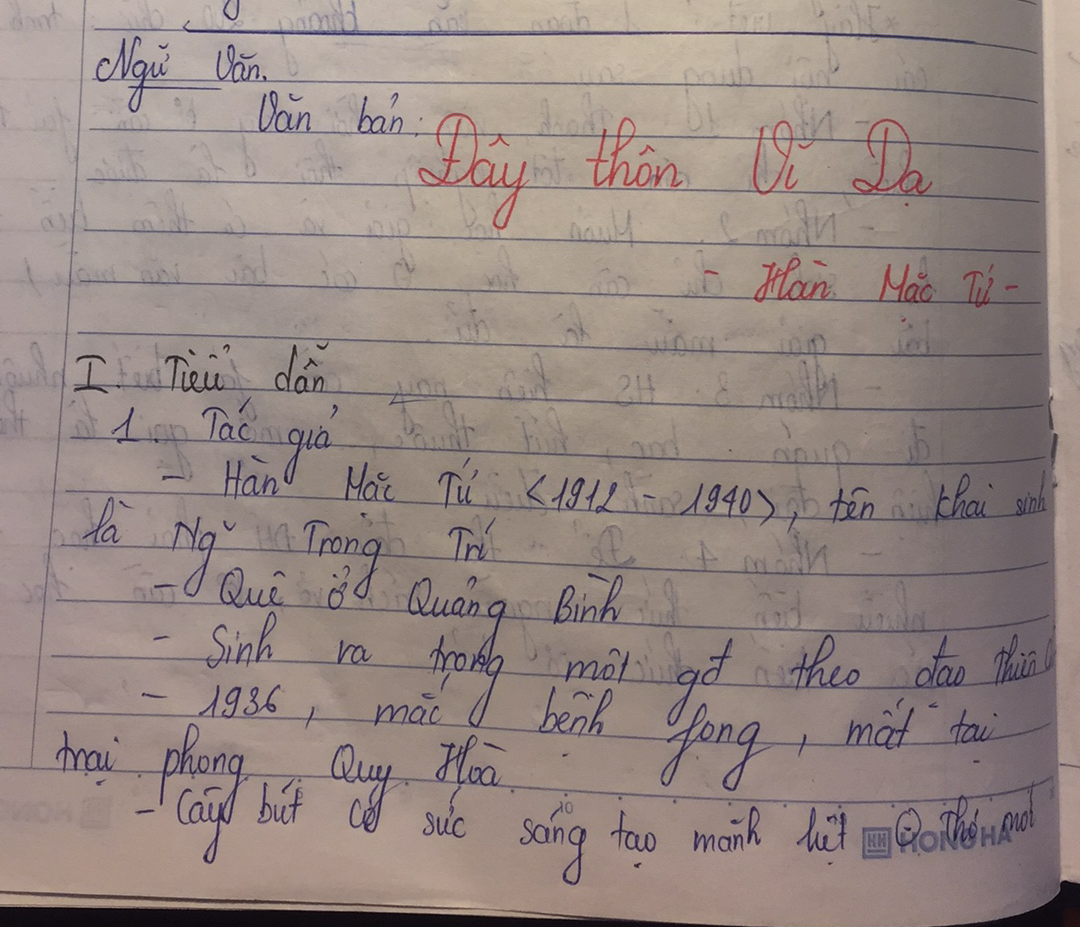 Ngữ Văn.
Văn bản:
Đây thôn Vĩ Dạ
- Hàn Mặc Tử -
I. Tiểu dẫn
1. Tác giả
- Hàn Mặc Tử <1912 - 1940>, tên khai sinh
là Ng~ Trọng Trí
- Quê ở Quảng Bình
- Sinh ra trong một gđ theo đạo thiên
- 1936, mắc bệnh fong, mất tại
trại phong Quy Hoà
- Cây bút có sức sáng tạo mãnh liệt thơ mới
HONG HA